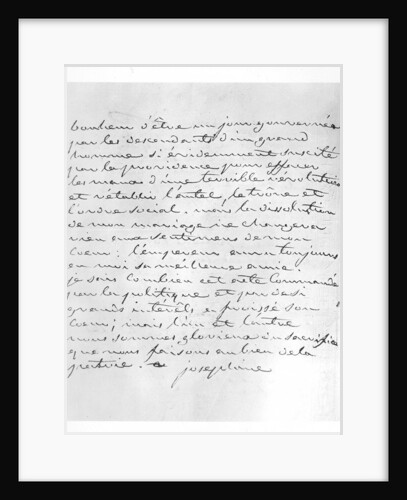 bonheur d'être un jour gouvernée
par les descendants d'un grand
homme si évidemment suscité
par la providence pour effacer
les maux d'une terrible révolution
et rétablir l'autel, le trône et
l'ordre social. mais la dissolution
de mon mariage ne changera
rien aux sentimens de mon
coeur: l'empereur aura toujours
en moi sa meilleure amie.
je sais combien cet acte Commandé
par la politique et par de si
grands intérêts, a froissé son
Coeur; mais l'un et l'autre
nous sommes glorieux du sacrifice
que nous faisons au bien de la
patrie.
josephine